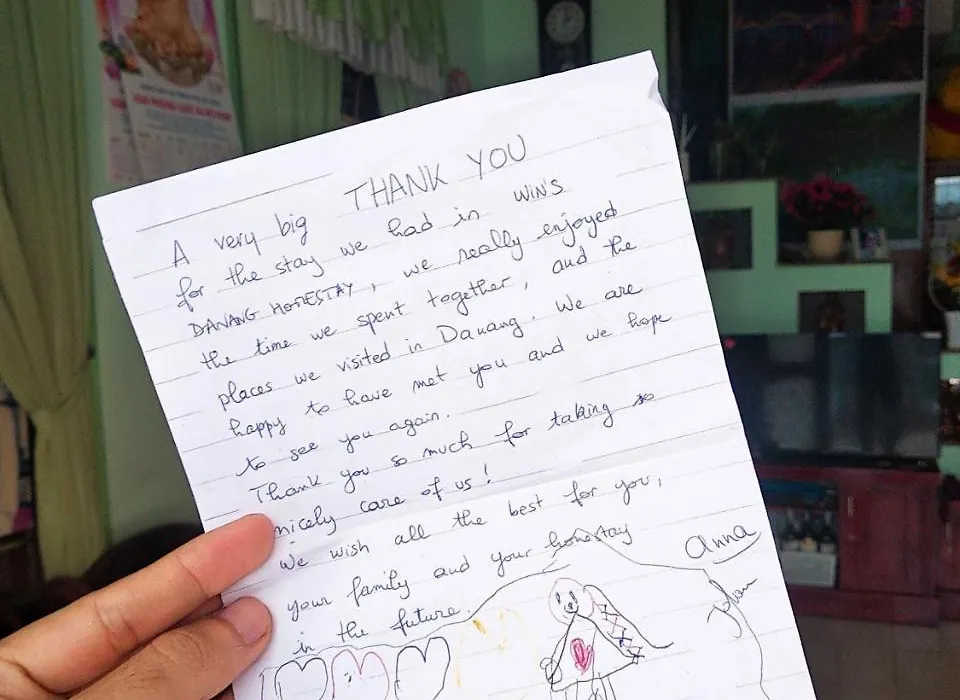 THANK YOU
A very big
for the stay we had in WIN'S
DANANG HOMESTAY, we really enjoyed
the time we spent together, and the
places we visited in Danang. We are
happy to have met you and we hope
to see you again.
Thank you so much for taking so
nicely care of us!
We wish all the best for you,
your family and your homestay
in the future.
Anna